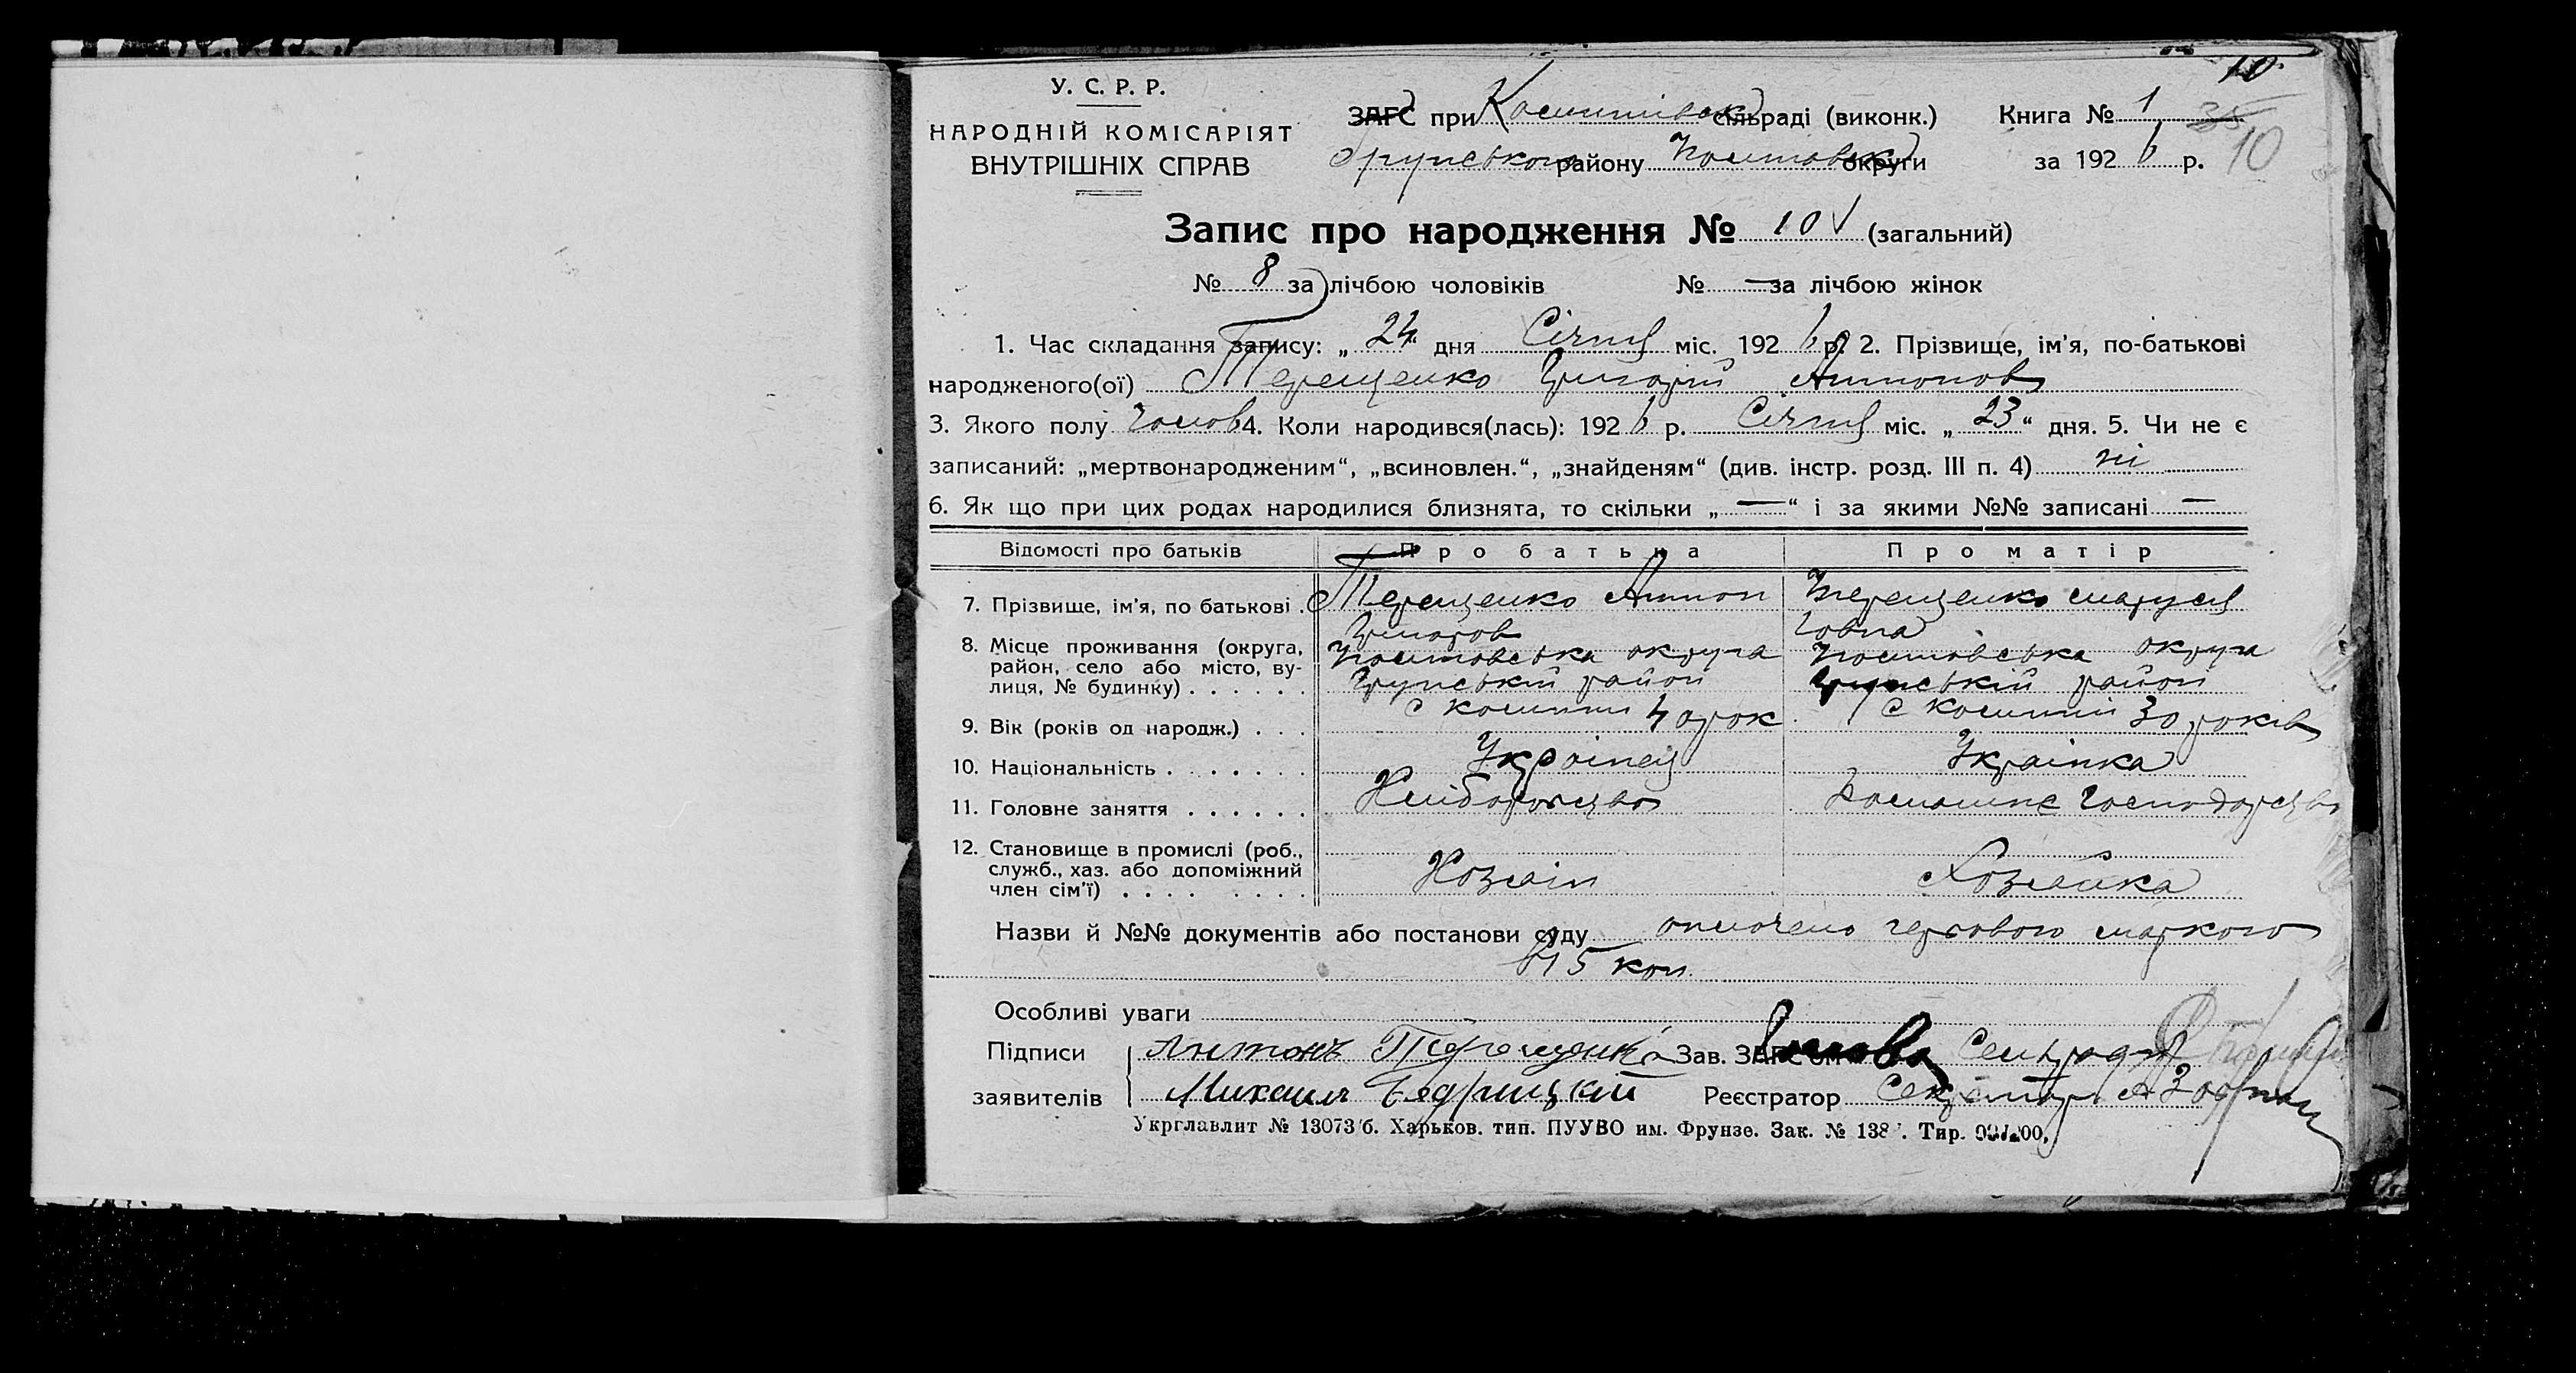 10
У. С. Р. Р.
НАРОДНІЙ КОМІСАРІЯТ
ВНУТРІШНІХ СПРАВ
ЗАГС при сільраді (виконк.) Книга № 1 35
району округи за 192 6 р. 10
Запис про народження № 10 (загальний)
№ 8 за лічбою чоловіків № — за лічбою жінок
1. Час складання запису: „ 24 “ дня Січня міс. 192 6 р. 2. Прізвище, ім'я, по-батькові
народженого(ої) Терещенко Григорій Антонов
3. Якого полу Чолов 4. Коли народився(лась): 192 6 р. Січня міс. „ 23 “ дня. 5. Чи не є
записаний: „мертвонародженим“, „всиновлен.“, „знайденям“ (див. інстр. розд. III п. 4) ні
6. Як що при цих родах народилися близнята, то скільки „ — “ і за якими №№ записані —
Відомості про батьків Про батька Про матір
7. Прізвище, ім'я, по батькові . Терещенко Антон Терещенко Маруся
Григоров
8. Місце проживання (округа, округа округа
район, село або місто, ву- район район
лиця, № будинку) . . . . . .
9. Вік (років од народж.) . . . с 40 рок с 30 років
10. Національність . . . . . . . Українец Українка
11. Головне заняття . . . . . . Хліборобство Домашнє Господарство
12. Становище в промислі (роб.,
служб., хаз. або допоміжний Хозяін Хозяйка
член сім'ї) . . . . . . . .
Назви й №№ документів або постанови суду оплочено гербовою маркою
в 15 коп.
Особливі уваги
Підписи Антонъ Терещенко Зав. ЗАГС'ом Голова Сельради
заявителів Михаил Бедрицкий Реєстратор Секретар
Укрглавлит № 13073/б. Харьков. тип. ПУУВО им. Фрунзе. Зак. № 138 . Тир.